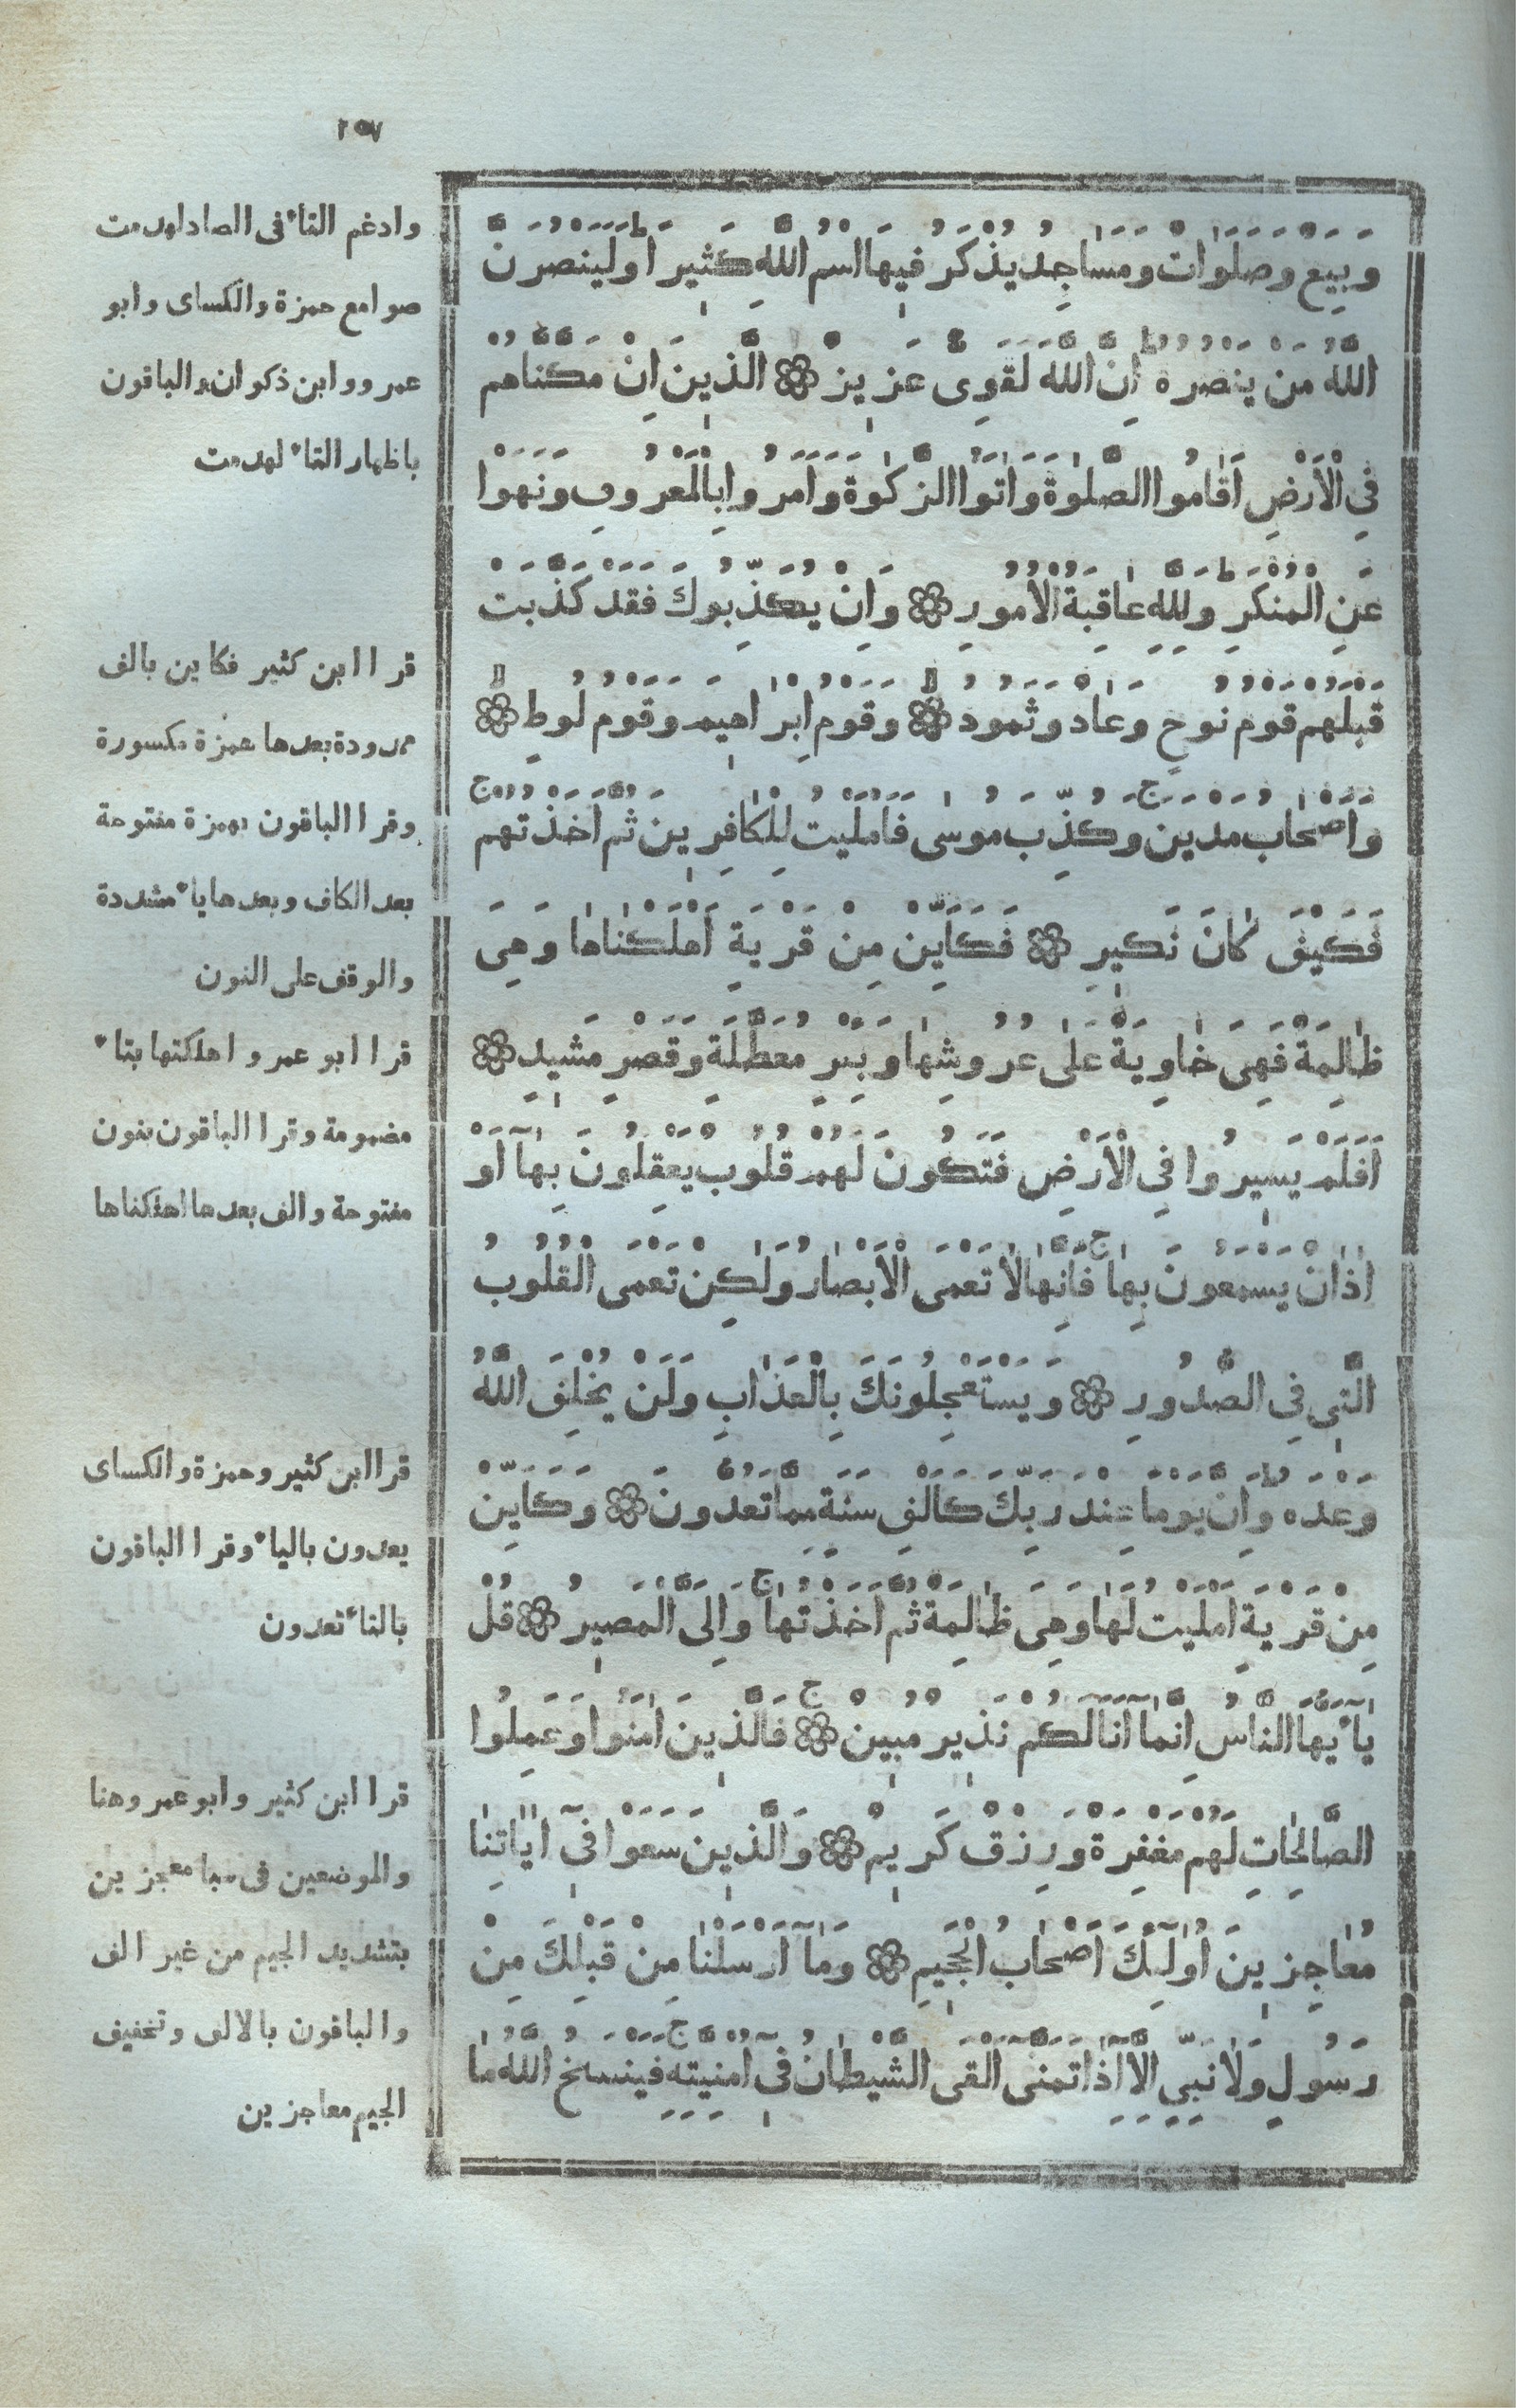 ٢٥٧
وَبِيَعٌ وَصَلَوَاتٌ وَمَسَاجِدُ يُذْكَرُ فِيهَا اسْمُ اللَّهِ كَثِيرًا وَلَيَنْصُرَنَّ
اللَّهُ مَنْ يَنْصُرُهُ ط إِنَّ اللَّهَ لَقَوِىٌّ عَزِيزٌ ۞ الَّذِينَ إِنْ مَكَّنَّاهُمْ
فِى الْأَرْضِ أَقَامُوا الصَّلٰوةَ وَاٰتَوُا الزَّكٰوةَ وَأَمَرُوا بِالْمَعْرُوفِ وَنَهَوْا
عَنِ الْمُنْكَرِ ط وَلِلَّهِ عَاقِبَةُ الْأُمُورِ ۞ وَإِنْ يُكَذِّبُوكَ فَقَدْ كَذَّبَتْ
قَبْلَهُمْ قَوْمُ نُوحٍ وَعَادٌ وَثَمُودُ ۞ وَقَوْمُ إِبْرَاهِيمَ وَقَوْمُ لُوطٍ ۞
وَأَصْحَابُ مَدْيَنَ ج وَكُذِّبَ مُوسَى فَأَمْلَيْتُ لِلْكَافِرِينَ ثُمَّ أَخَذْتُهُمْ ج
فَكَيْفَ كَانَ نَكِيرِ ۞ فَكَأَيِّنْ مِنْ قَرْيَةٍ أَهْلَكْنَاهَا وَهِىَ
ظَالِمَةٌ فَهِىَ خَاوِيَةٌ عَلَى عُرُوشِهَا وَبِئْرٍ مُعَطَّلَةٍ وَقَصْرٍ مَشِيدٍ ۞
أَفَلَمْ يَسِيرُوا فِى الْأَرْضِ فَتَكُونَ لَهُمْ قُلُوبٌ يَعْقِلُونَ بِهَآ أَوْ
اٰذَانٌ يَسْمَعُونَ بِهَا ج فَإِنَّهَا لَا تَعْمَى الْأَبْصَارُ وَلٰكِنْ تَعْمَى الْقُلُوبُ
الَّتِى فِى الصُّدُورِ ۞ وَيَسْتَعْجِلُونَكَ بِالْعَذَابِ وَلَنْ يُخْلِفَ اللَّهُ
وَعْدَهُ ط وَإِنَّ يَوْمًا عِنْدَ رَبِّكَ كَأَلْفِ سَنَةٍ مِمَّا تَعُدُّونَ ۞ وَكَأَيِّنْ
مِنْ قَرْيَةٍ أَمْلَيْتُ لَهَا وَهِىَ ظَالِمَةٌ ثُمَّ أَخَذْتُهَا ج وَإِلَىَّ الْمَصِيرُ ۞ قُلْ
يَآ أَيُّهَا النَّاسُ إِنَّمَآ أَنَا لَكُمْ نَذِيرٌ مُبِينٌ ج ۞ فَالَّذِينَ اٰمَنُوا وَعَمِلُوا
الصَّالِحَاتِ لَهُمْ مَغْفِرَةٌ وَرِزْقٌ كَرِيمٌ ۞ وَالَّذِينَ سَعَوْا فِىٓ اٰيَاتِنَا
مُعَاجِزِينَ أُولٰٓئِكَ أَصْحَابُ الْجَحِيمِ ۞ وَمَآ أَرْسَلْنَا مِنْ قَبْلِكَ مِنْ
رَسُولٍ وَلَا نَبِىٍّ إِلَّآ إِذَا تَمَنَّى أَلْقَى الشَّيْطَانُ فِىٓ أُمْنِيَّتِهِ ج فَيَنْسَخُ اللَّهُ مَا
وادغم التاء فى الصاد لهدمت
صوامع حمزة والكساى وابو
عمرو وابن ذكوان والباقون
باظهار التاء لهدمت
قرا ابن كثير فكاين بالف
ممدودة بعدها همزة مكسورة
وقرا الباقون بهمزة مفتوحة
بعد الكاف وبعدها ياء مشددة
والوقف على النون
قرا ابو عمرو اهلكتها بتاء
مضمومة وقرا الباقون بنون
مفتوحة والف بعدها اهلكناها
قرا ابن كثير وحمزة والكساى
يعدون بالياء وقرا الباقون
بالتاء تعدون
قرا ابن كثير وابو عمرو هنا
والموضعين فى سبا معجزين
بتشديد الجيم من غير الف
والباقون بالالف وتخفيف
الجيم معاجزين